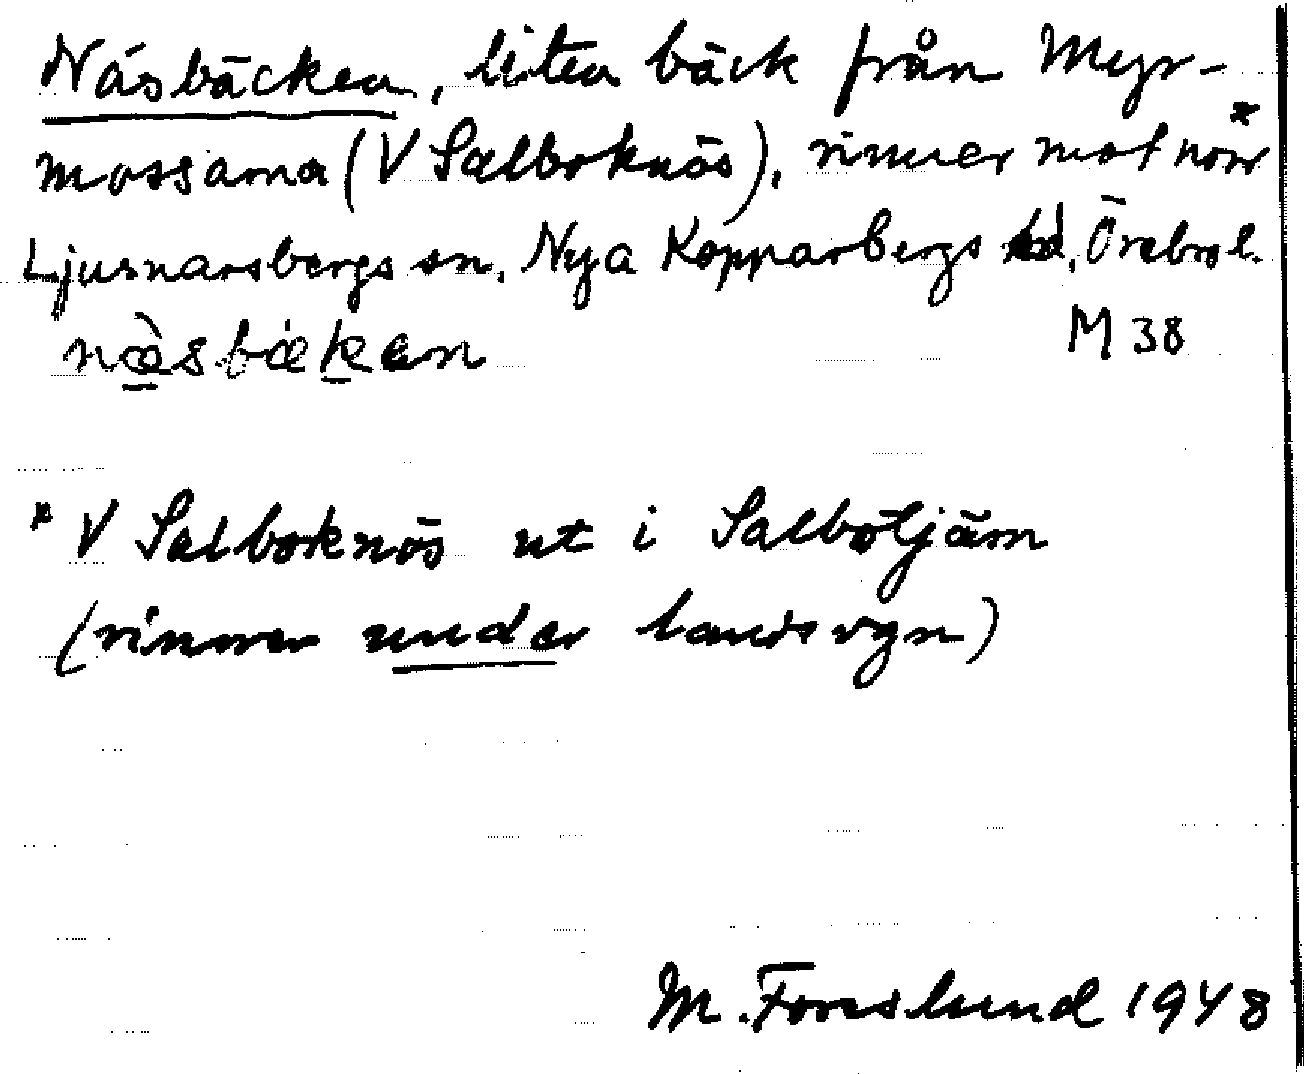 Näsbäcken, liten bäck från Myr-
mossarna (V Salboknös), rinner mot norr*
Ljusnarsbergs sn, Nya Kopparbergs bd, Örebro l.
næ̀sbækan M 38
* V Salboknös ut i Salbotjärn
(rinner under landsvgn)
M. Forslund 1948